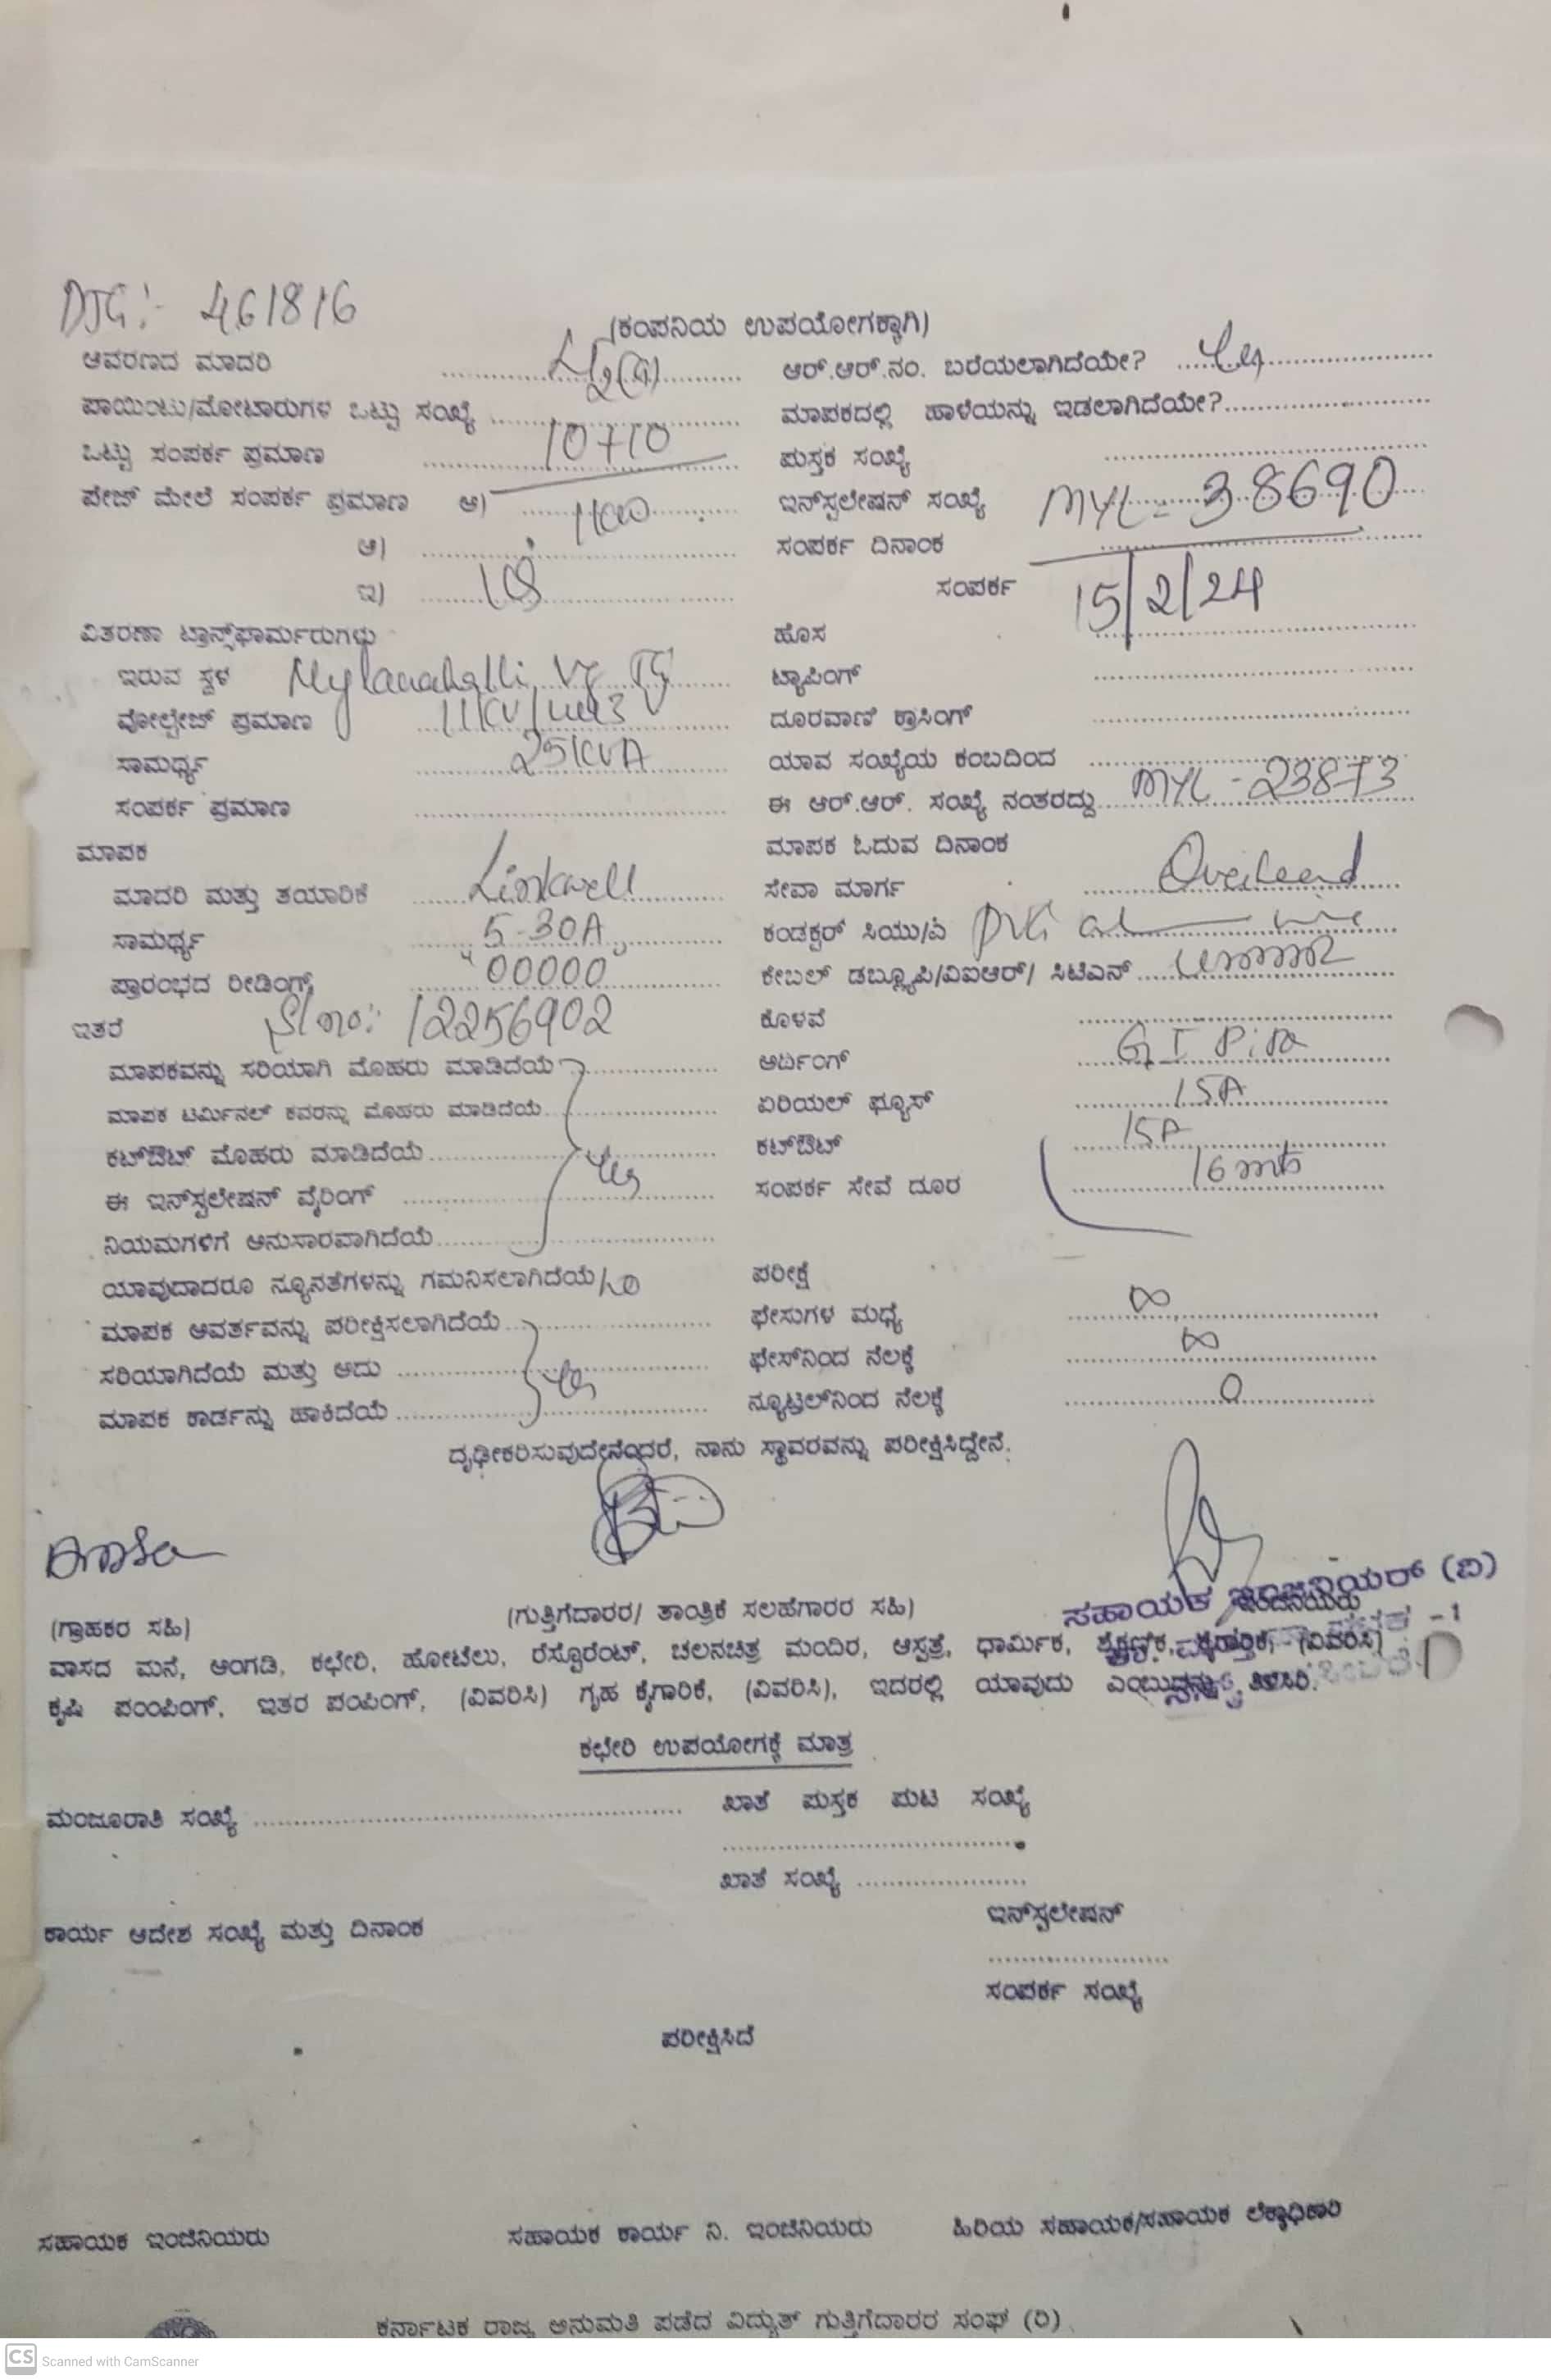 DTG:- 461816
(ಕಂಪನಿಯ ಉಪಯೋಗಕ್ಕಾಗಿ)
ಆವರಣದ ಮಾದರಿ ........ ಆರ್.ಆರ್.ನಂ. ಬರೆಯಲಾಗಿದೆಯೇ? ..... Yes
ಪಾಯಿಂಟು/ಮೋಟಾರುಗಳ ಒಟ್ಟು ಸಂಖ್ಯೆ ........ ಮಾಪಕದಲ್ಲಿ ಹಾಳೆಯನ್ನು ಇಡಲಾಗಿದೆಯೇ?........
ಒಟ್ಟು ಸಂಪರ್ಕ ಪ್ರಮಾಣ ........ ಪುಸ್ತಕ ಸಂಖ್ಯೆ ........
ಪೇಜ್ ಮೇಲೆ ಸಂಪರ್ಕ ಪ್ರಮಾಣ ಅ) ........ ಇನ್‌ಸ್ಟಲೇಷನ್ ಸಂಖ್ಯೆ MYL - 38690
ಆ) ........ ಸಂಪರ್ಕ ದಿನಾಂಕ ........
ಇ) ........ ಸಂಪರ್ಕ 15/2/24
ವಿತರಣಾ ಟ್ರಾನ್ಸ್‌ಫಾರ್ಮರುಗಳು ಹೊಸ ........
ಇರುವ ಸ್ಥಳ Mylanahalli ........ ಟ್ಯಾಪಿಂಗ್ ........
ವೋಲ್ಟೇಜ್ ಪ್ರಮಾಣ ........ ದೂರವಾಣಿ ಕ್ರಾಸಿಂಗ್ ........
ಸಾಮರ್ಥ್ಯ 25KVA ಯಾವ ಸಂಖ್ಯೆಯ ಕಂಬದಿಂದ ........
ಸಂಪರ್ಕ ಪ್ರಮಾಣ ........ ಈ ಆರ್.ಆರ್. ಸಂಖ್ಯೆ ನಂತರದ್ದು MYL - 23873
ಮಾಪಕ ಮಾಪಕ ಓದುವ ದಿನಾಂಕ
ಮಾದರಿ ಮತ್ತು ತಯಾರಿಕೆ ..... Linkwell ಸೇವಾ ಮಾರ್ಗ ..... Overhead
ಸಾಮರ್ಥ್ಯ 5-30A ಕಂಡಕ್ಟರ್ ಸಿಯು/ಎ
ಪ್ರಾರಂಭದ ರೀಡಿಂಗ್ಸ್ 00000 ಕೇಬಲ್ ಡಬ್ಲ್ಯೂಪಿ/ವಿಐಆರ್/ ಸಿಟಿಎನ್ ........
ಇತರೆ Sl no: 12256902 ಕೊಳವೆ ........
ಮಾಪಕವನ್ನು ಸರಿಯಾಗಿ ಮೊಹರು ಮಾಡಿದೆಯೆ ........ ಅರ್ಥಿಂಗ್ GI Pipe
ಮಾಪಕ ಟರ್ಮಿನಲ್ ಕವರನ್ನು ಮೊಹರು ಮಾಡಿದೆಯೆ ........ ಏರಿಯಲ್ ಫ್ಯೂಸ್ 15A
ಕಟ್‌ಔಟ್ ಮೊಹರು ಮಾಡಿದೆಯೆ ........ Yes ಕಟ್‌ಔಟ್ 15A
ಈ ಇನ್‌ಸ್ಟಲೇಷನ್ ವೈರಿಂಗ್ ........ ಸಂಪರ್ಕ ಸೇವೆ ದೂರ 16 mts
ನಿಯಮಗಳಿಗೆ ಅನುಸಾರವಾಗಿದೆಯೆ ........
ಯಾವುದಾದರೂ ನ್ಯೂನತೆಗಳನ್ನು ಗಮನಿಸಲಾಗಿದೆಯೆ No ಪರೀಕ್ಷೆ
ಮಾಪಕ ಆವರ್ತವನ್ನು ಪರೀಕ್ಷಿಸಲಾಗಿದೆಯೆ ........ ಫೇಸುಗಳ ಮಧ್ಯೆ ∞
ಸರಿಯಾಗಿದೆಯೆ ಮತ್ತು ಅದು ........ Yes ಫೇಸ್‌ನಿಂದ ನೆಲಕ್ಕೆ ∞
ಮಾಪಕ ಕಾರ್ಡನ್ನು ಹಾಕಿದೆಯೆ ........ ನ್ಯೂಟ್ರಲ್‌ನಿಂದ ನೆಲಕ್ಕೆ 0
ದೃಢೀಕರಿಸುವುದೇನೆಂದರೆ, ನಾನು ಸ್ಥಾವರವನ್ನು ಪರೀಕ್ಷಿಸಿದ್ದೇನೆ.
ಸಹಾಯಕ ಇಂಜಿನಿಯರ್ (ವಿ)
(ಗ್ರಾಹಕರ ಸಹಿ) (ಗುತ್ತಿಗೆದಾರರ/ ತಾಂತ್ರಿಕ ಸಲಹೆಗಾರರ ಸಹಿ)
ವಾಸದ ಮನೆ, ಅಂಗಡಿ, ಕಛೇರಿ, ಹೋಟೆಲು, ರೆಸ್ಟೊರೆಂಟ್, ಚಲನಚಿತ್ರ ಮಂದಿರ, ಆಸ್ಪತ್ರೆ, ಧಾರ್ಮಿಕ, ಶೈಕ್ಷಣಿಕ, (ವಿವರಿಸಿ)
ಕೃಷಿ ಪಂಂಪಿಂಗ್, ಇತರ ಪಂಪಿಂಗ್, (ವಿವರಿಸಿ) ಗೃಹ ಕೈಗಾರಿಕೆ, (ವಿವರಿಸಿ), ಇದರಲ್ಲಿ ಯಾವುದು ಎಂಬುದನ್ನು ತಿಳಿಸಿರಿ.
ಕಛೇರಿ ಉಪಯೋಗಕ್ಕೆ ಮಾತ್ರ
ಮಂಜೂರಾತಿ ಸಂಖ್ಯೆ ........ ಖಾತೆ ಪುಸ್ತಕ ಪುಟ ಸಂಖ್ಯೆ
........
ಖಾತೆ ಸಂಖ್ಯೆ ........
ಇನ್‌ಸ್ಟಲೇಷನ್
ಕಾರ್ಯ ಆದೇಶ ಸಂಖ್ಯೆ ಮತ್ತು ದಿನಾಂಕ ........
ಸಂಪರ್ಕ ಸಂಖ್ಯೆ
ಪರೀಕ್ಷಿಸಿದೆ
ಸಹಾಯಕ ಇಂಜಿನಿಯರು ಸಹಾಯಕ ಕಾರ್ಯ ನಿ. ಇಂಜಿನಿಯರು ಹಿರಿಯ ಸಹಾಯಕ/ಸಹಾಯಕ ಲೆಕ್ಕಾಧಿಕಾರಿ
ಕರ್ನಾಟಕ ರಾಜ್ಯ ಅನುಮತಿ ಪಡೆದ ವಿದ್ಯುತ್ ಗುತ್ತಿಗೆದಾರರ ಸಂಘ (ರಿ)
CS Scanned with CamScanner